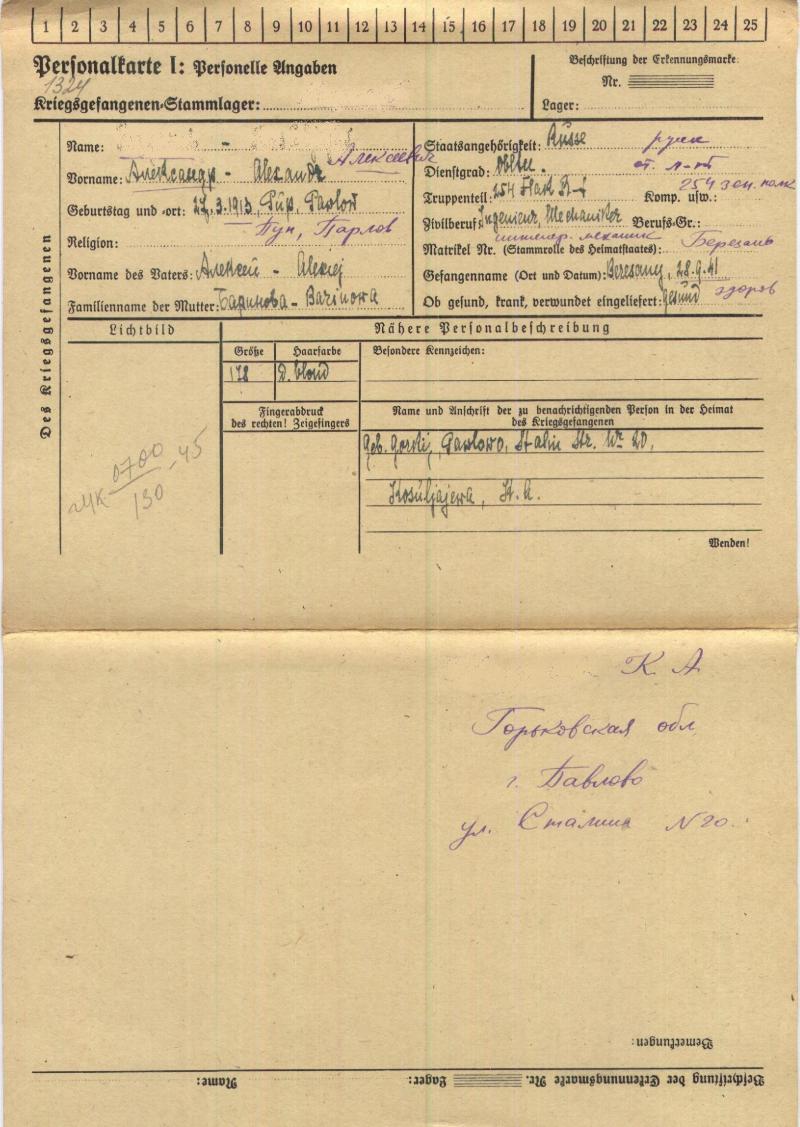 1 2 3 4 5 6 7 8 9 10 11 12 13 14 15 16 17 18 19 20 21 22 23 24 25
Personalkarte I: Personelle Angaben
1324
Kriegsgefangenen-Stammlager:
Beschriftung der Erkennungsmarke
Nr.
Lager:
Des Kriegsgefangenen
Name:
Алексеевич
Vorname: Александр - Alexandr
Geburtstag und -ort: 27.3.1913, Gawlow
Парлов
Religion:
Vorname des Vaters: Алексей - Alexej
Familienname der Mutter: Баринова - Barinowa
Staatsangehörigkeit: Russe русск
Dienstgrad: Obltn. ст. л-т
Truppenteil: 254 Flak Komp. usw.: 254 зен. полк
Zivilberuf: Ingenieur, Mechaniker Berufs-Gr.:
инженер. механик
Matrikel Nr. (Stammrolle des Heimatstaates): Березань
Gefangenname (Ort und Datum): Beresany, 28.9.41
Ob gesund, krank, verwundet eingeliefert: gesund здоров
Lichtbild
Nähere Personalbeschreibung
Größe
Haarfarbe
Besondere Kennzeichen:
178
D. blond
Fingerabdruck
des rechten! Zeigefingers
Name und Anschrift der zu benachrichtigenden Person in der Heimat
des Kriegsgefangenen
Geb. Gorkij, Pawlowo, Stalin Str. Nr 20,
Kosuljajewa, K.A.
0700
130
-45
Wenden!
К. А
Горьковская обл.
г. Павлово
ул. Сталина N 20.
Bemerkungen:
Beschriftung der Erkennungsmarke Nr. Lager: Name: